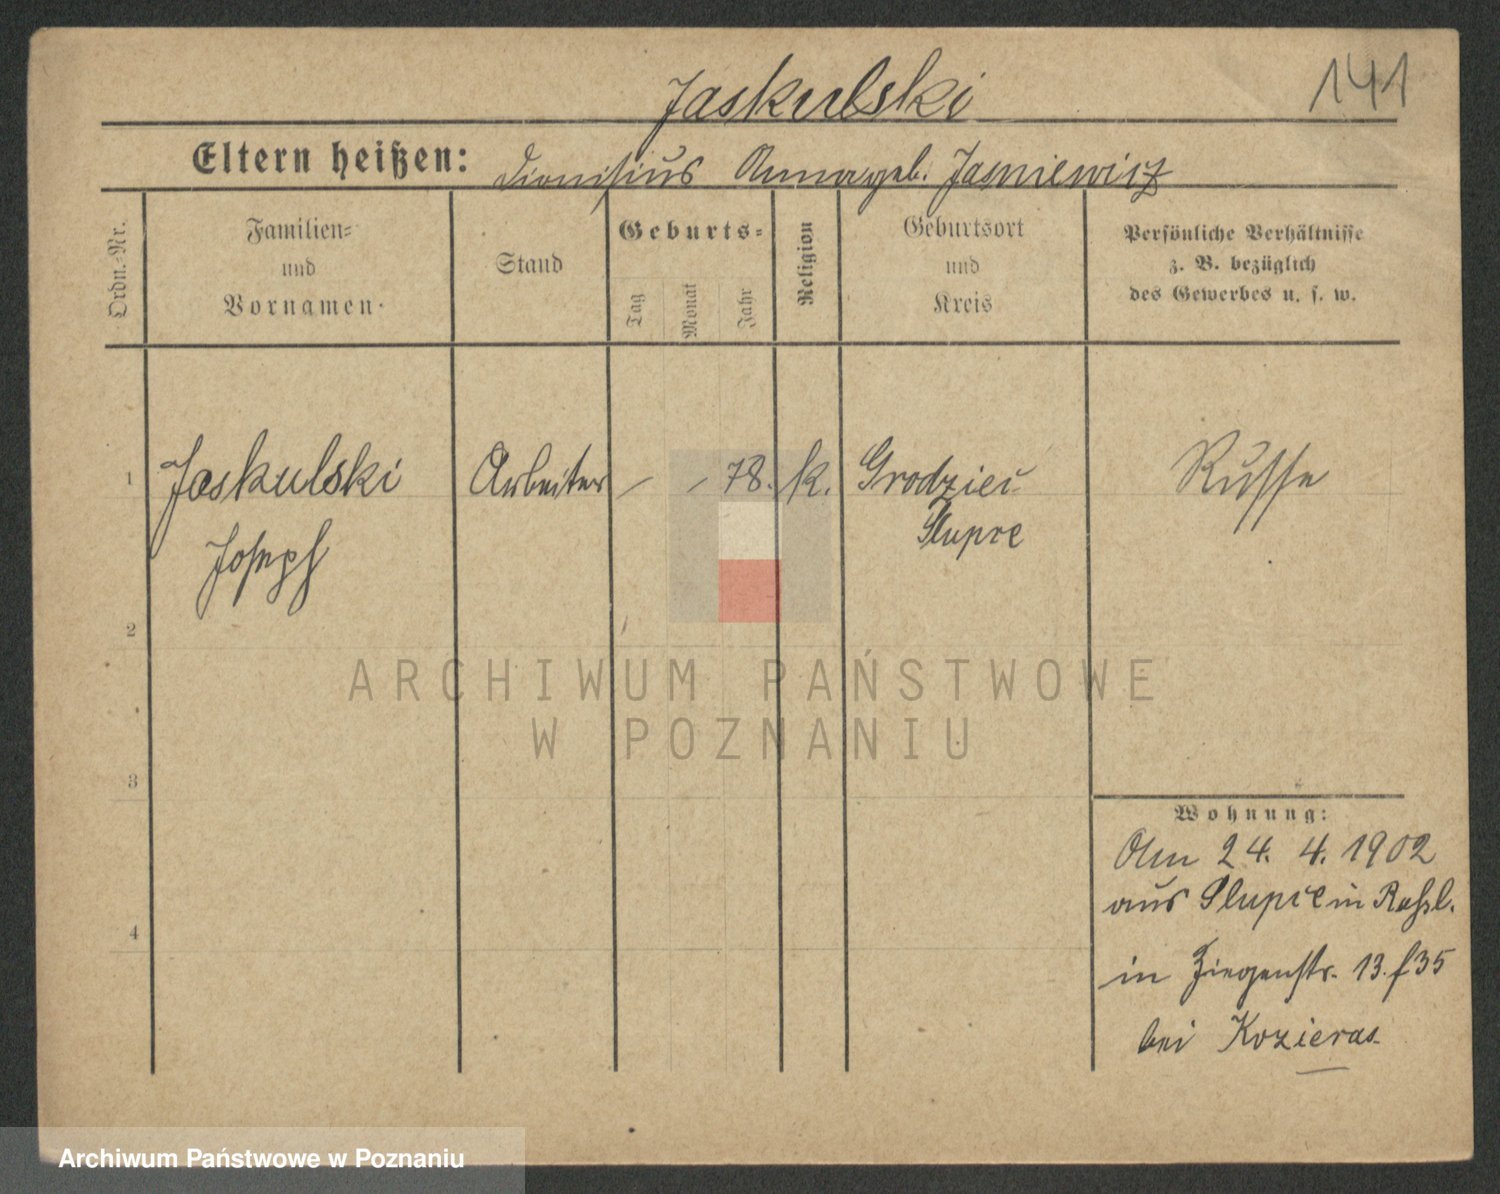 141
Jaskulski
Eltern heißen: Dionisius Anna geb. Jasniewicz
Ordn.-Nr.
Familien-
und
Vornamen.
Stand
Geburts-
Tag
Monat
Jahr
Religion
Geburtsort
und
Kreis
Persönliche Verhältnisse
z. B. bezüglich
des Gewerbes u. s. w.
1 Jaskulski Arbeiter / / 78. K. Grodziec Russe
Joseph Slupce
2
3
4
ARCHIWUM PAŃSTWOWE
W POZNANIU
Wohnung:
Am 24. 4. 1902
aus Slupce in Rußl.
in Ziegenstr. 13. f 35
bei Kozieras
Archiwum Państwowe w Poznaniu